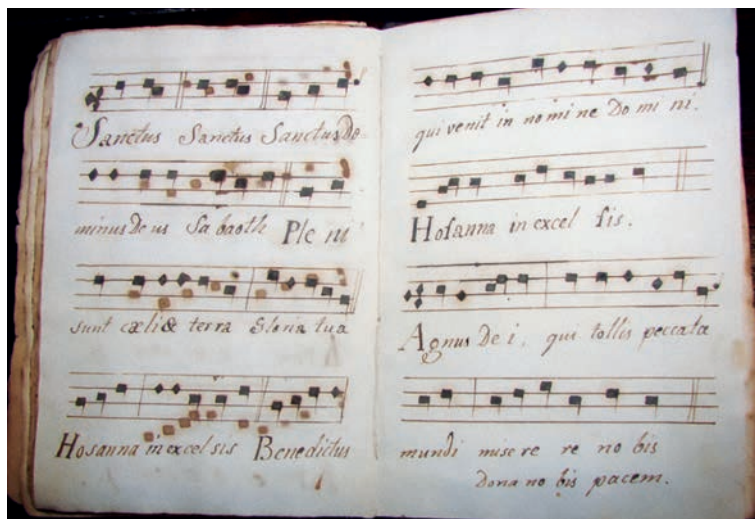 Sanctus Sanctus Sanctus Do-
minus De us Sa baoth Ple ni
sunt cæli & terra Gloria tua
Hosanna in excel sis Benedictus
qui venit in no mi ne Do mi ni.
Hosanna in excel sis.
Agnus De i, qui tollis peccata
mundi mise re re no bis
Dona no bis pacem.